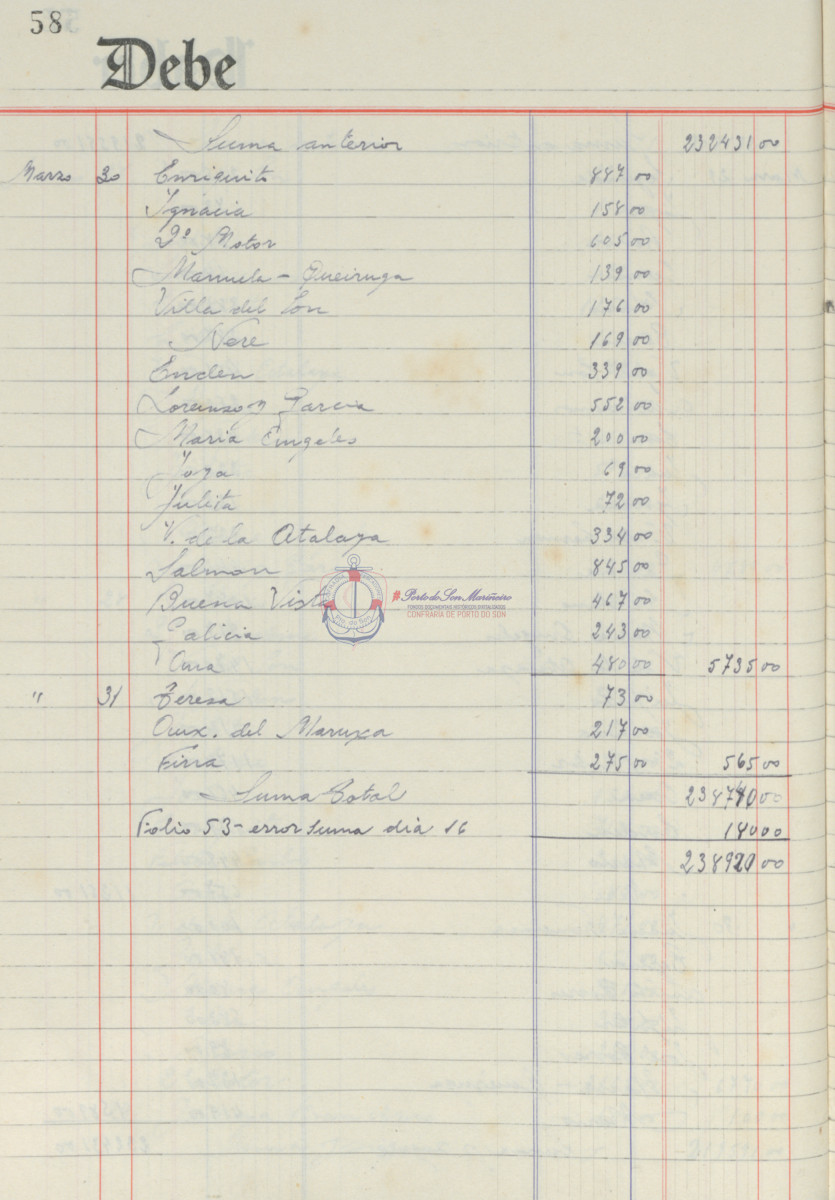 58
Debe
Suma anterior 232431 00
Marzo 30 Enriquito 887 00
Ignacia 158 00
2º Motor 605 00
Manuela - Queiruga 139 00
Villa del Son 176 00
Nere 169 00
339 00
Lorenzo y Garcia 552 00
Maria 200 00
69 00
Julita 72 00
V. de la Atalaya 334 00
Salmon 845 00
Buena Vista 467 00
Galicia 243 00
Ana 480 00 5735 00
" 31 Teresa 73 00
Aux. del Maruxa 217 00
Fina 275 00 565 00
Suma Total 00
Folio 53 - error Suma dia 16 180 00
00
Porto do Son Mariñeiro
FONDOS DOCUMENTAIS HISTÓRICOS DIXITALIZADOS
CONFRARÍA DE PORTO DO SON